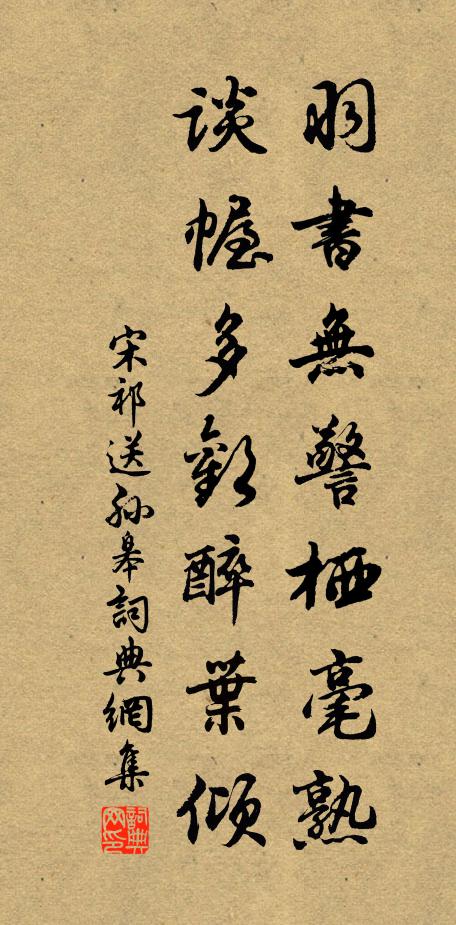 羽書無警栖毫熟
談幄多歡醉葉傾
宋祁送孫皋詞典網集
詞典网印